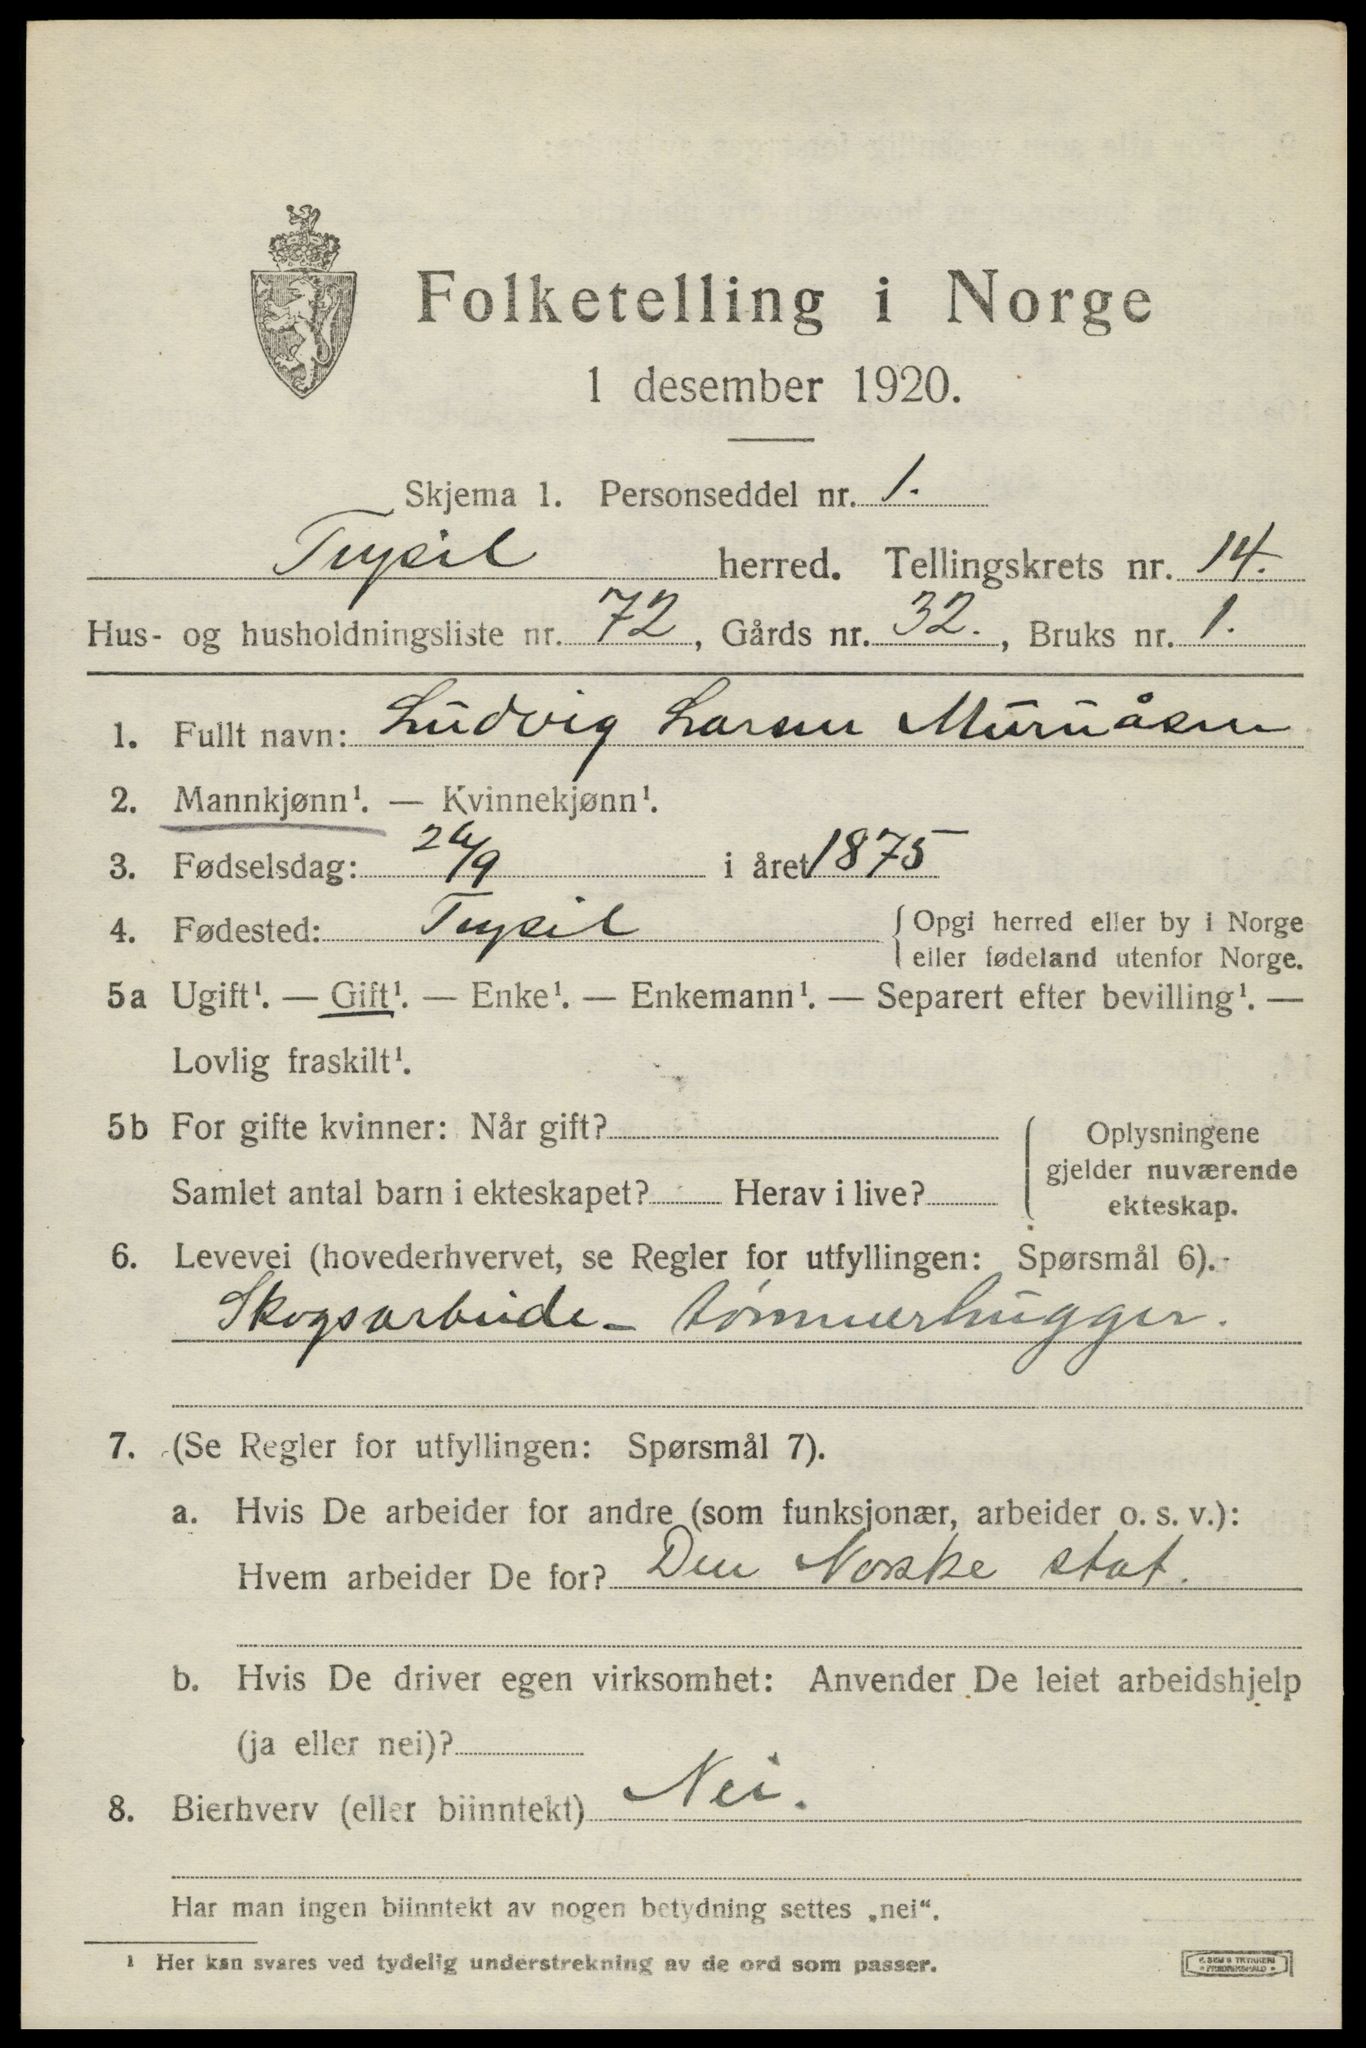 Folketelling i Norge
1 desember 1920.
Skjema 1. Personseddel nr. 1.
Trysil herred. Tellingskrets nr. 14.
Hus- og husholdningsliste nr. 72, Gårds nr. 32., Bruks nr. 1.
1. Fullt navn: Ludvig Larsen Murnåsen
2. Mannkjønn¹. — Kvinnekjønn¹.
3. Fødselsdag: 26/9 i året 1875
4. Fødested: Trysil { Opgi herred eller by i Norge
eller fødeland utenfor Norge.
5a Ugift¹. — Gift¹. — Enke¹. — Enkemann¹. — Separert efter bevilling¹. —
Lovlig fraskilt¹.
5b For gifte kvinner: Når gift?
Samlet antal barn i ekteskapet? Herav i live?
{ Oplysningene
gjelder nuværende
ekteskap.
6. Levevei (hovederhvervet, se Regler for utfyllingen: Spørsmål 6).
Skogsarbeide - tømmerhugger.
7. (Se Regler for utfyllingen: Spørsmål 7).
a. Hvis De arbeider for andre (som funksjonær, arbeider o. s. v.):
Hvem arbeider De for? Den Norske stat.
b. Hvis De driver egen virksomhet: Anvender De leiet arbeidshjelp
(ja eller nei)?
8. Bierhverv (eller biinntekt) Nei.
Har man ingen biinntekt av nogen betydning settes „nei“.
¹ Her kan svares ved tydelig understrekning av de ord som passer.